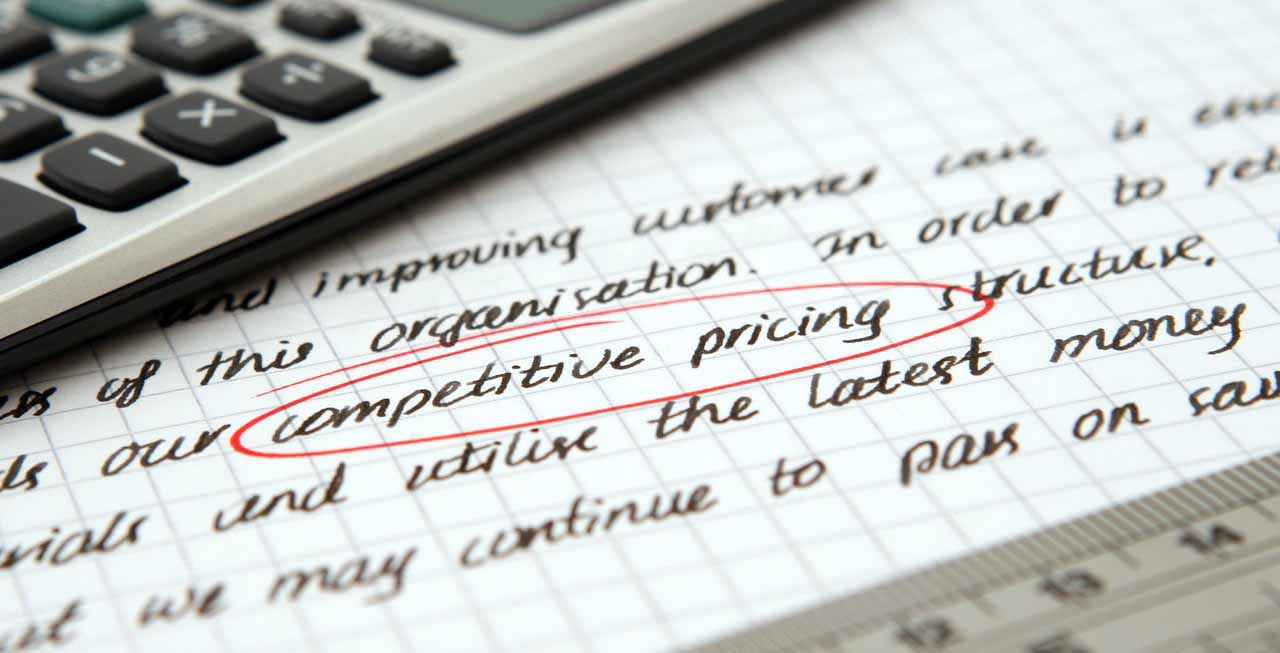 and improving customer care is
of this organisation. In order to
our competitive pricing structure.
and utilise the latest money
we may continue to pass on
12 13 14
% 9 ÷ × −